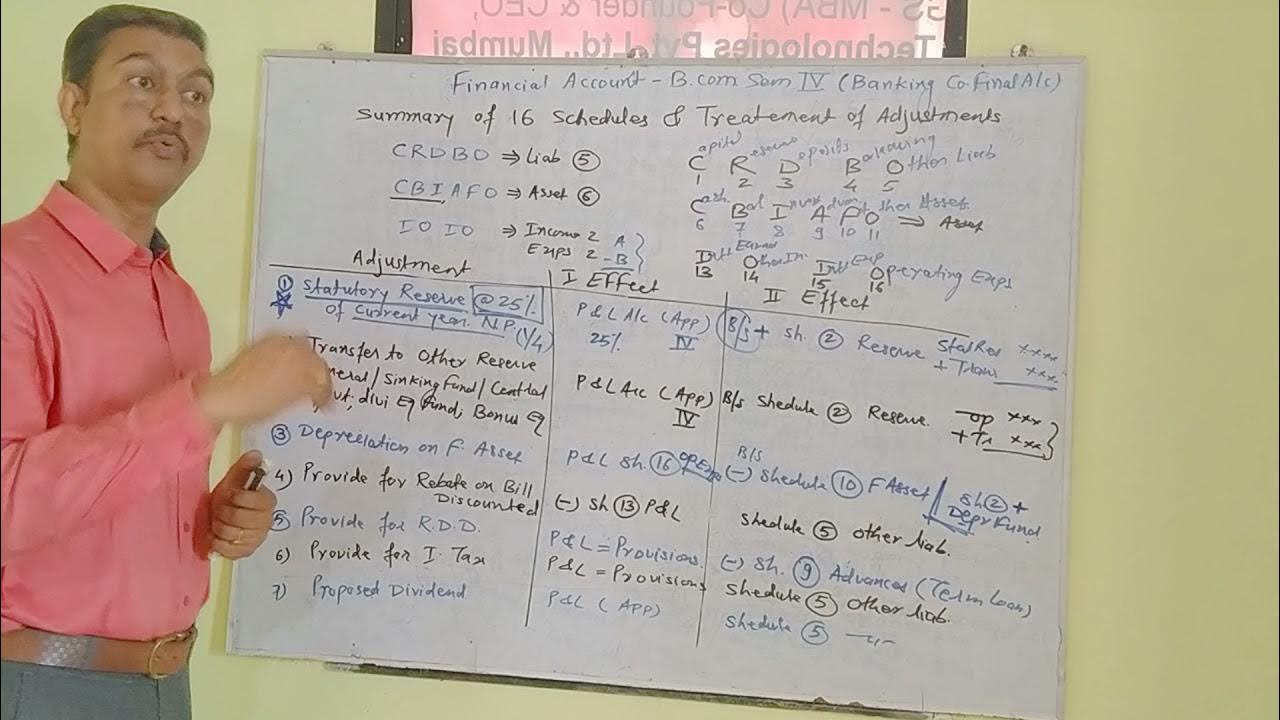 GS - MBA) Co-Founder & CEO,
Technologies Pvt. Ltd., Mumbai
Financial Account - B.com Sem IV (Banking Co Final A/c)
Summary of 16 Schedules & Treatement of Adjustments
CRDBO ⇒ Liab ⑤
Capital Reserve Deposits Borrowing Other Liab
1 2 3 4 5
CBIAFO ⇒ Asset ⑥
Cash Bal Invest Advan Other Asset ⇒ Asset
6 7 8 9 10 11
IO IO ⇒ Income 2 A
Exps 2 - B
Intt Earned Other In. Intt Exp Operating Exps
13 14 15 16
Adjustment
I Effect
II Effect
① Statutory Reserve @ 25%
of current year N.P. (1/4)
P&L A/c (App)
25% IV
B/s + sh. ② Reserve Stat Res xxxx
+ Trans xxx
Transfer to Other Reserve
neral/Sinking Fund/Central
divi Eq Fund, Bonus Eq
P&L A/c (App)
IV
B/s Shedule ② Reserve. op xxx
+ Tr xxx
③ Depreciation on F. Asset
P&L Sh. ⑯ op Exp
B/S
(-) Shedule ⑩ F Asset / Sh ② +
Depr Fund
4) Provide for Rebate on Bill
Discounted
(-) Sh ⑬ P&L
Shedule ⑤ other liab.
⑤ Provide for R.D.D.
P&L = Provisions.
(-) Sh. ⑨ Advances (Term Loan)
6) Provide for I. Tax
P&L = Provisions
Shedule ⑤ Other liab.
7) Proposed Dividend
P&L (App)
Shedule ⑤ -〃-